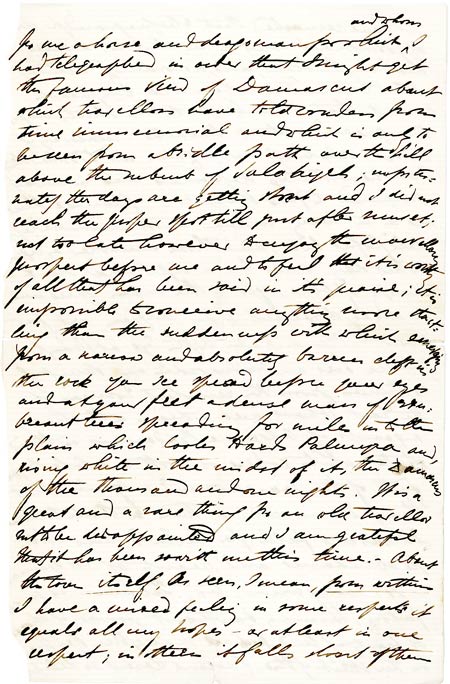 and whom
for me a horse and dragoman for which, I
had telegraphed in order that I might get
the famous view of Damascus about
which travellers have told wonders from
time immemorial and which is only to
be seen from a bridle path over the hill
above the suburb of Salahiyeh; unfortu-
nately the days are getting short and I did not
reach the proper spot till just after sunset;
not too late however to enjoy the marvellous
prospect before me and to feel that it is worthy
of all that has been said in its praise; it is
impossible to conceive anything more start-
ling than the suddenness with which emerging
from a narrow and absolutely barren cleft in
the rock you see spread before your eyes
and at your feet a dense mass of exu-
berant trees spreading for miles into the
plain which looks towards Palmyra and,
rising white in the midst of it, the Damascus
of the thousand and one nights. It is a
great and a rare thing for an old traveller
not to be disappointed and I am grateful
that it has been so with me this time. - About
the town itself, as seen, I mean, from within
I have a mixed feeling in some respects it
equals all my hopes - or at least in one
respect; in others it falls short of them